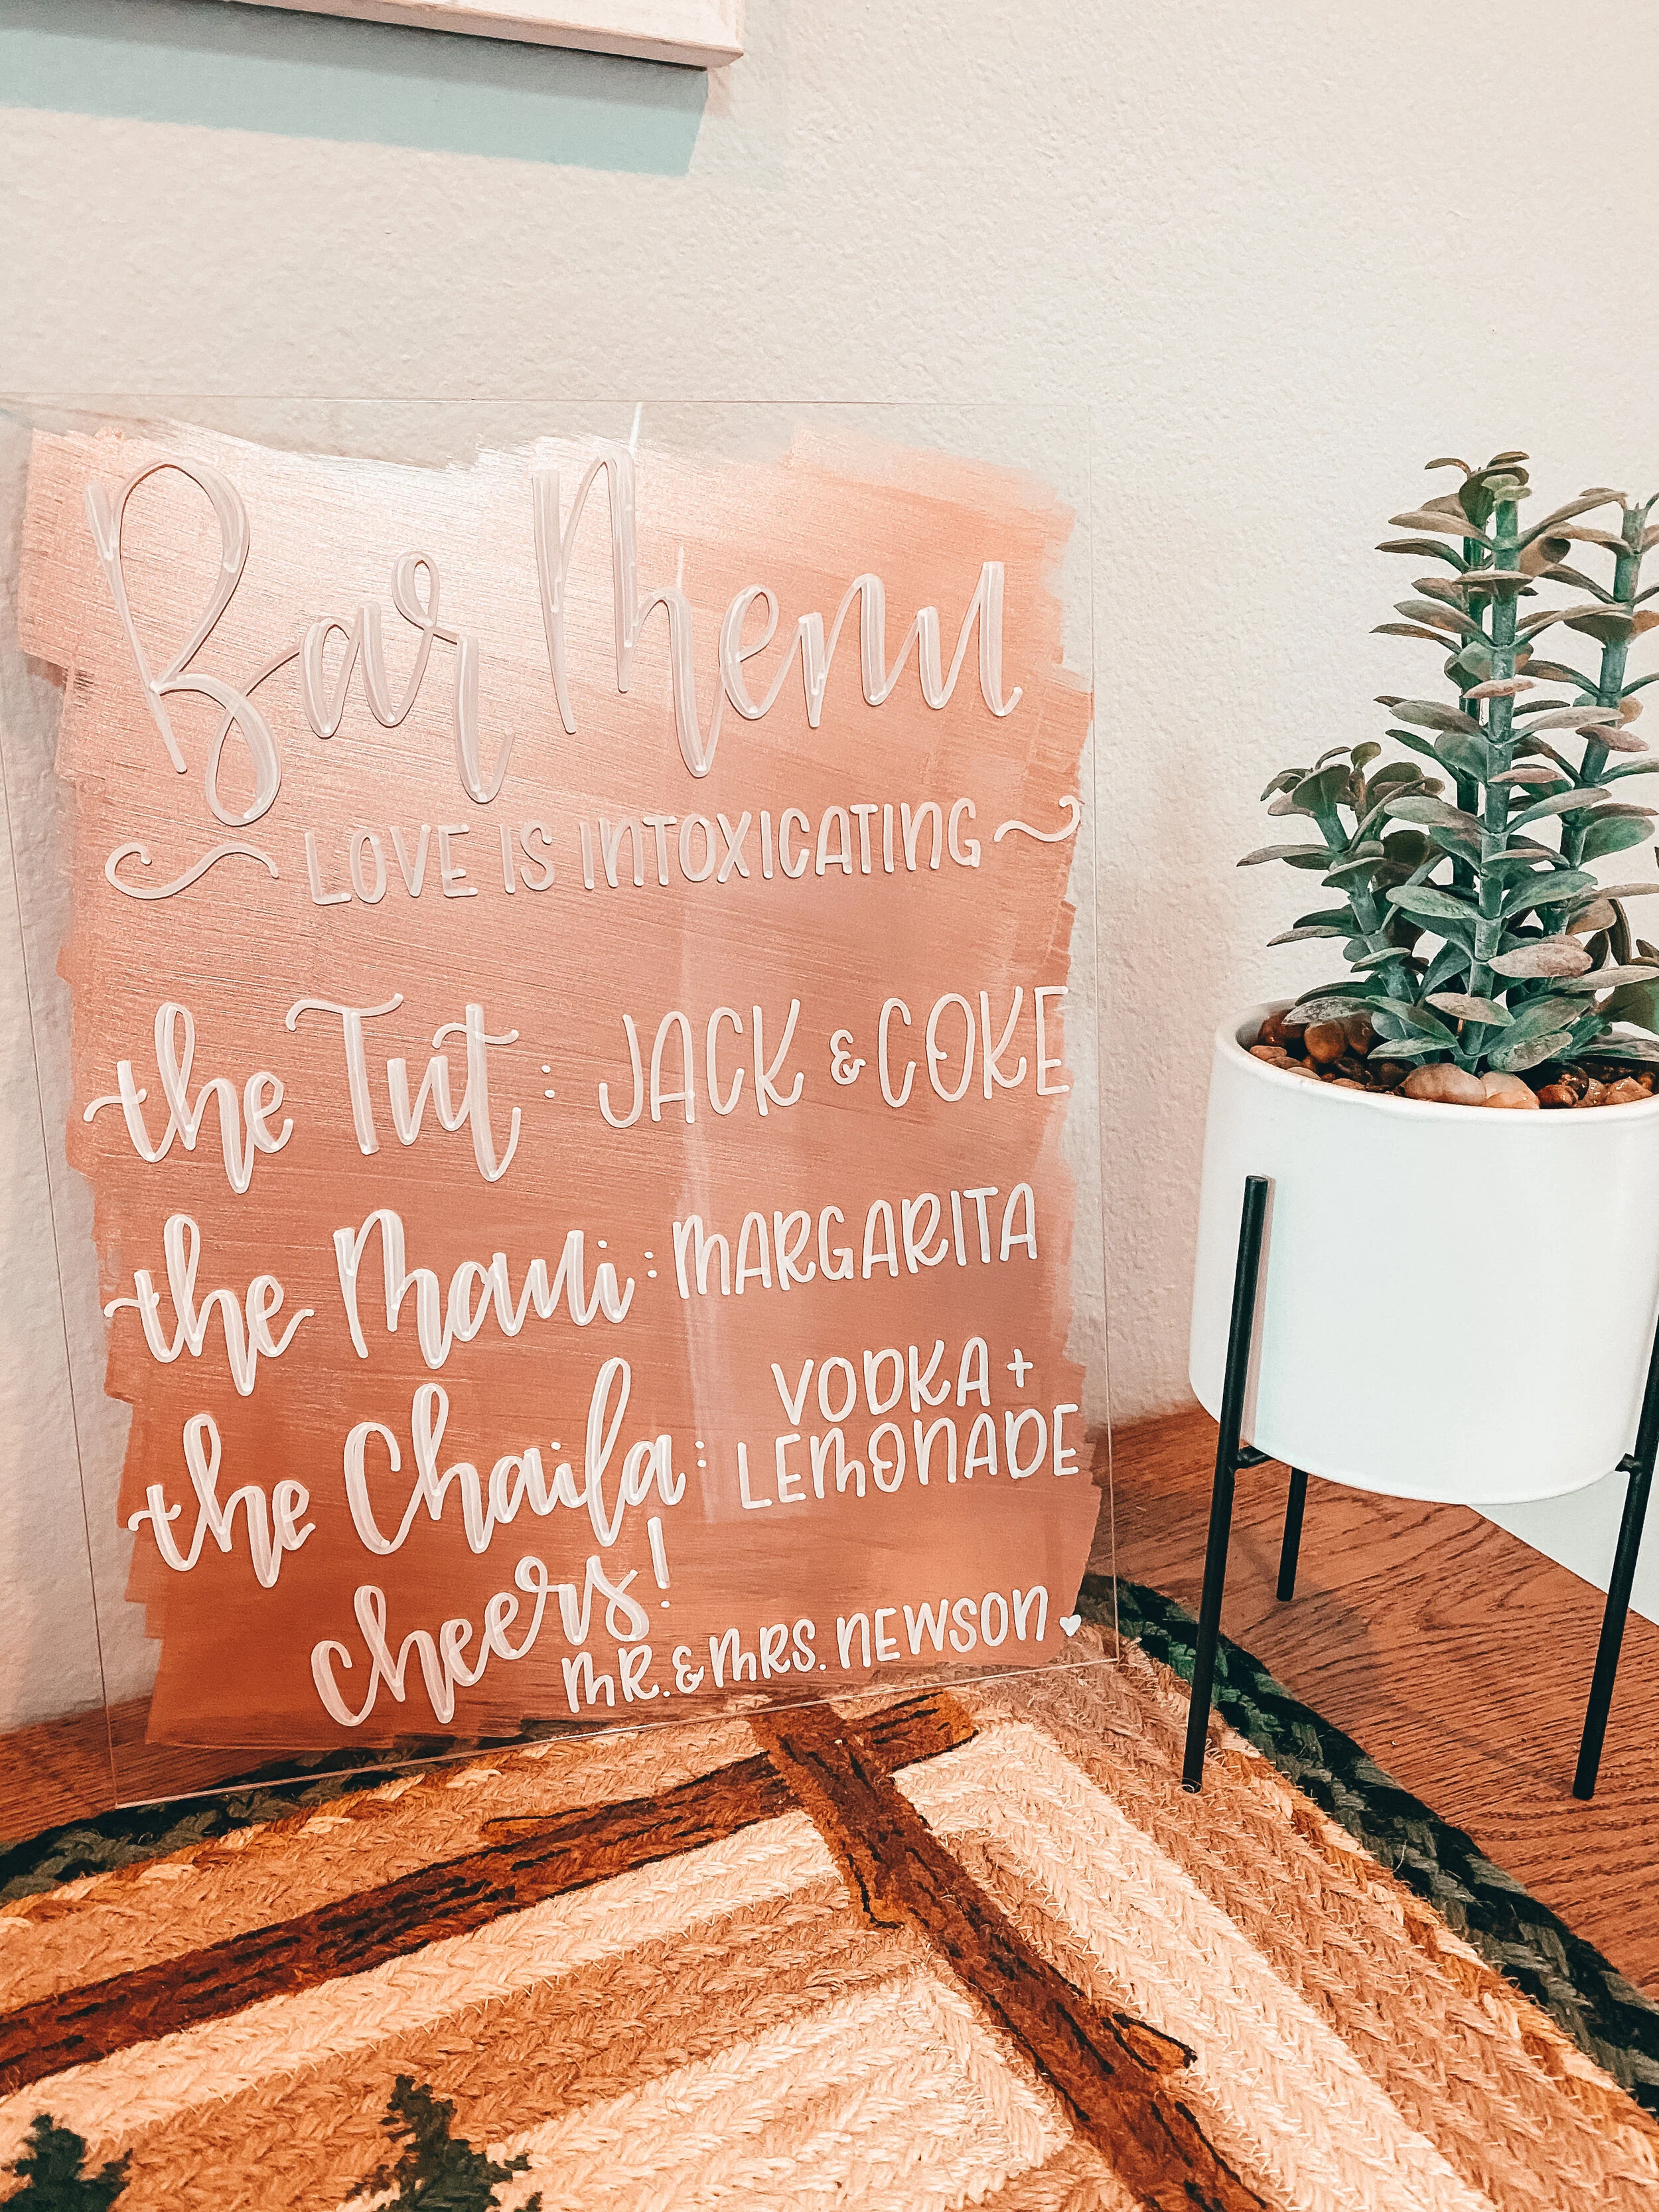 Bar Menu
LOVE IS INTOXICATING
the Tut: JACK & COKE
the Maui: MARGARITA
the Chaila: VODKA +
LEMONADE
cheers!
MR. & MRS. NEWSON